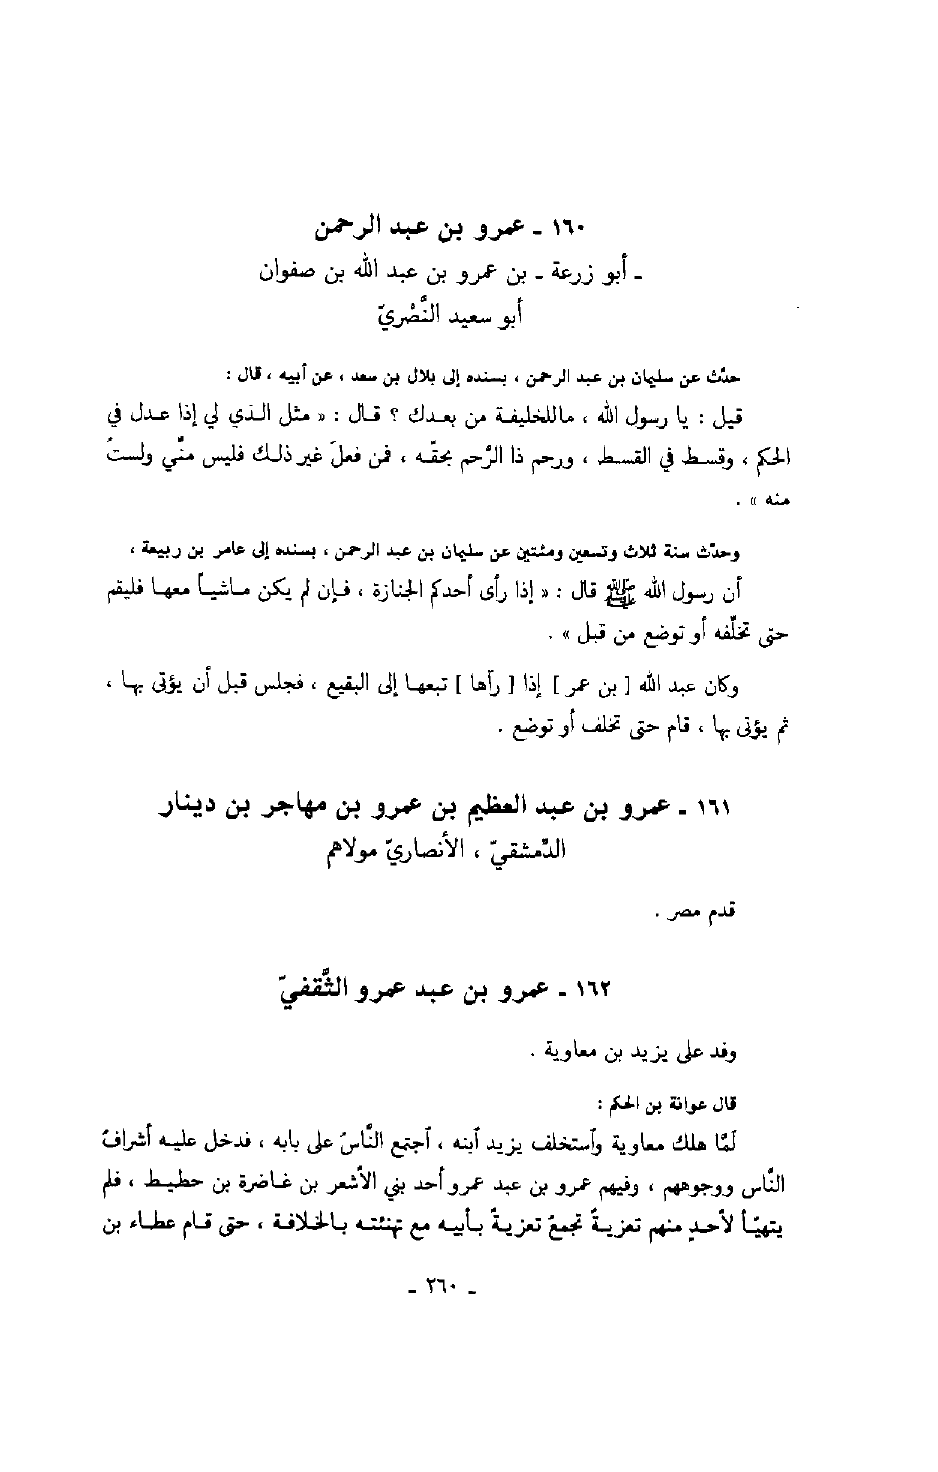 ١٦٠ ـ عمرو بن عبد الرحمن
ـ أبو زرعة ـ بن عمرو بن عبد الله بن صفوان
أبو سعيد النَّصْريّ
حدّث عن سليمان بن عبد الرحمن ، بسنده إلى بلال بن سعد ، عن أبيه ، قال :
قيل : يا رسول الله ، ماللخليفة من بعدك ؟ قال : « مثل الذي لي إذا عدل في
الحكم ، وقسط في القسط ، ورحم ذا الرَّحم بحقّه ، فمن فعلَ غير ذلك فليس منّي ولستُ
منه » .
وحدّث سنة ثلاث وتسعين ومئتين عن سليمان بن عبد الرحمن ، بسنده إلى عامر بن ربيعة ،
أن رسول الله ﷺ قال : « إذا رأى أحدكم الجنازة ، فإن لم يكن ماشياً معها فليقم
حتى تخلّفه أو توضع من قبل » .
وكان عبد الله [ بن عمر ] إذا [ رآها ] تبعها إلى البقيع ، فجلس قبل أن يؤتى بها ،
ثم يؤتى بها ، قام حتى تخلف أو توضع .
١٦١ ـ عمرو بن عبد العظيم بن عمرو بن مهاجر بن دينار
الدّمشقيّ ، الأنصاريّ مولاهم
قدم مصر .
١٦٢ ـ عمرو بن عبد عمرو الثَّقفيّ
وفد على يزيد بن معاوية .
قال عوانة بن الحكم :
لَمّا هلك معاوية وٱستخلف يزيد ٱبنه ، ٱجتمع النَّاسُ على بابه ، فدخل عليه أشرافُ
النَّاس ووجوههم ، وفيهم عمرو بن عبد عمرو أحد بني الأشعر بن غاضرة بن حطيط ، فلم
يتهيّأ لأحدٍ منهم تعزيةٌ تجمعُ تعزيةً بأبيه مع تهنئته بالخلافة ، حتى قام عطاء بن
ـ ٢٦٠ ـ